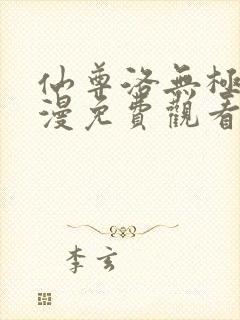 仙尊洛無極
漫免費觀看
李玄